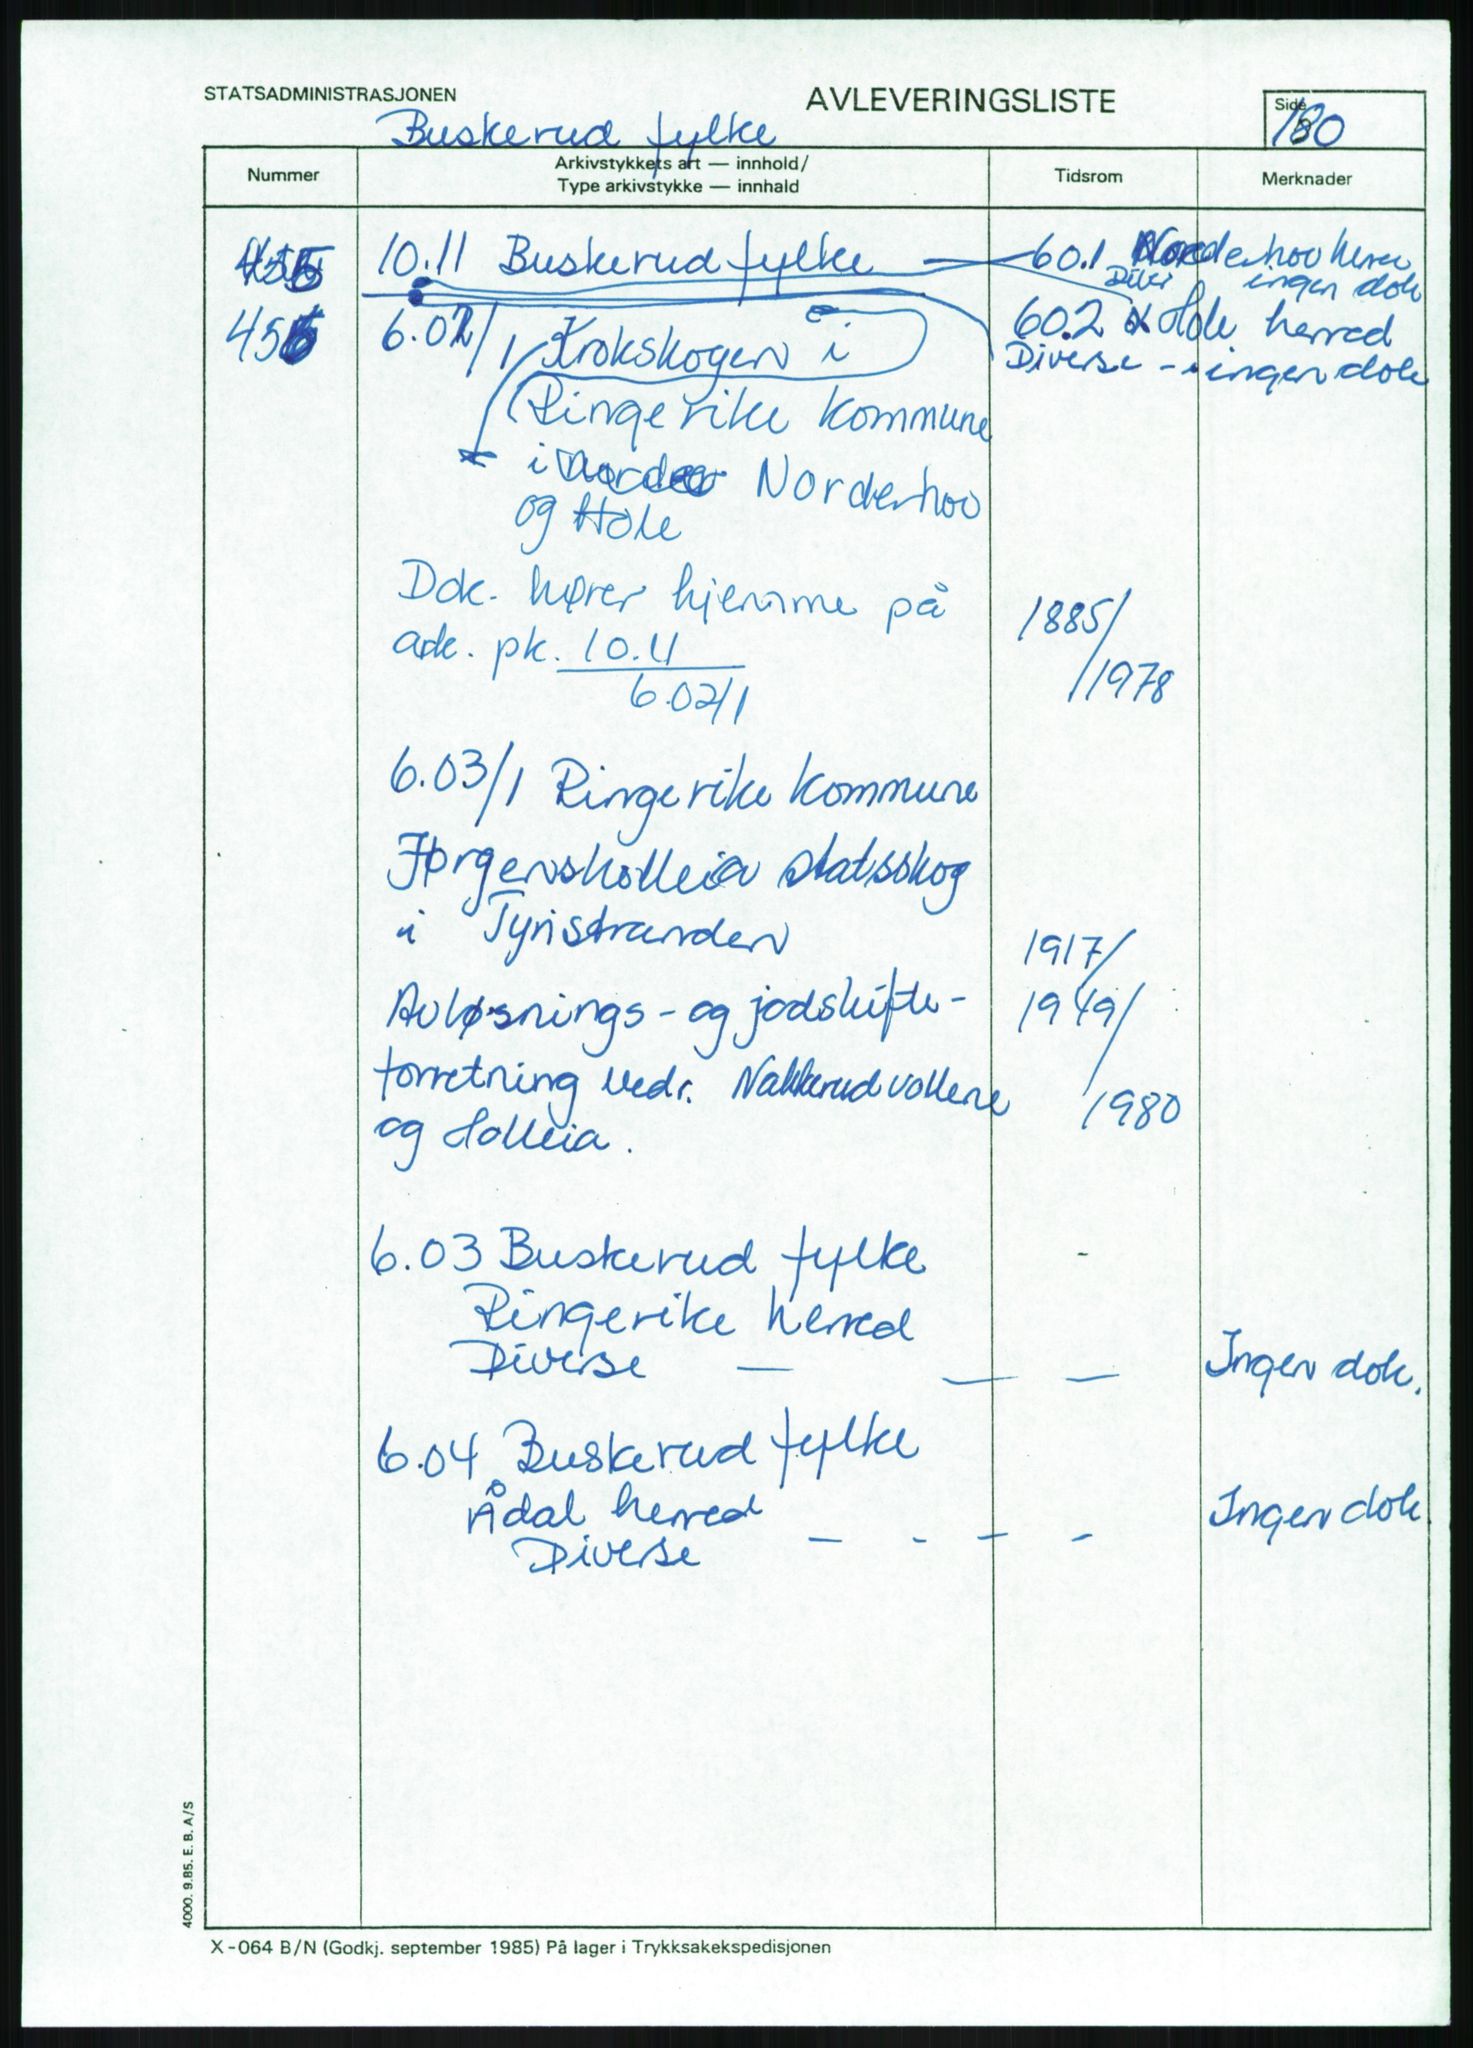 STATSADMINISTRASJONEN
AVLEVERINGSLISTE
Side
180
Buskerud fylke
Nummer
Arkivstykkets art — innhold/
Type arkivstykke — innhald
Tidsrom
Merknader
455
10.11 Buskerud fylke
60.1 Norderhov herred
Diver ingen dok
455
6.02/1 Krokskogen i
60.2 Hole herred
Diverse - ingen dok
Ringerike kommune
i Norderhov
og Hole
Dok. hører hjemme på
ark. pk. 10.11
6.02/1
1885/
/1978
6.03/1 Ringerike kommune
Jørgensholleia statsskog
i Tyristranden
1917/
Avløsnings- og jodskifte-
1949/
forretning vedr. Nakkerudvollene
/1980
og Holleia.
6.03 Buskerud fylke
-
Ringerike herred
Diverse — — —
Ingen dok.
6.04 Buskerud fylke
Ådal herred
Ingen dok.
Diverse - - - -
4000. 9.85. E. B. A/S
X-064 B/N (Godkj. september 1985) På lager i Trykksakekspedisjonen